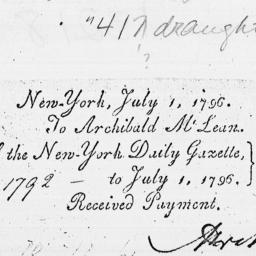 "417 draught
?
New-York, July 1, 1796.
To Archibald McLean.
the New-York Daily Gazette,
1792 — to July 1, 1796.
Received Payment.